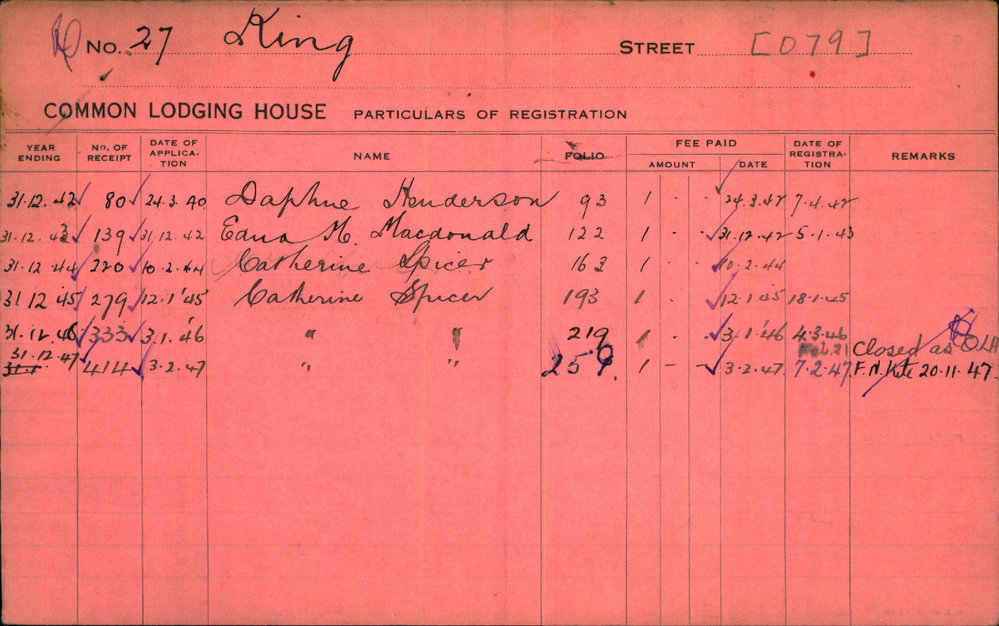 No. 27 King STREET [079]
COMMON LODGING HOUSE PARTICULARS OF REGISTRATION
YEAR ENDING No. OF RECEIPT DATE OF APPLICA-TION NAME FOLIO FEE PAID AMOUNT DATE DATE OF REGISTRA-TION REMARKS
31.12.42 80 24.3.40 Daphne Henderson 93 1 - - 24.3.42 7.4.42
31.12.43 139 31.12.42 Edna M. Macdonald 122 1 - - 31.12.42 5.1.43
31.12.44 220 10.2.44 Catherine Spicer 163 1 - 10.2.44
31 12 45 279 12.1.45 Catherine Spicer 193 1 - 12.1.45 18.1.45
31.12.46 333 3.1.46 " " 219 1 - 3.1.46 4.3.46
31.12.47 414 3.2.47 " " 259. 1 - - 3.2.47. 7.2.47. Closed as
F. N. 20.11.47.